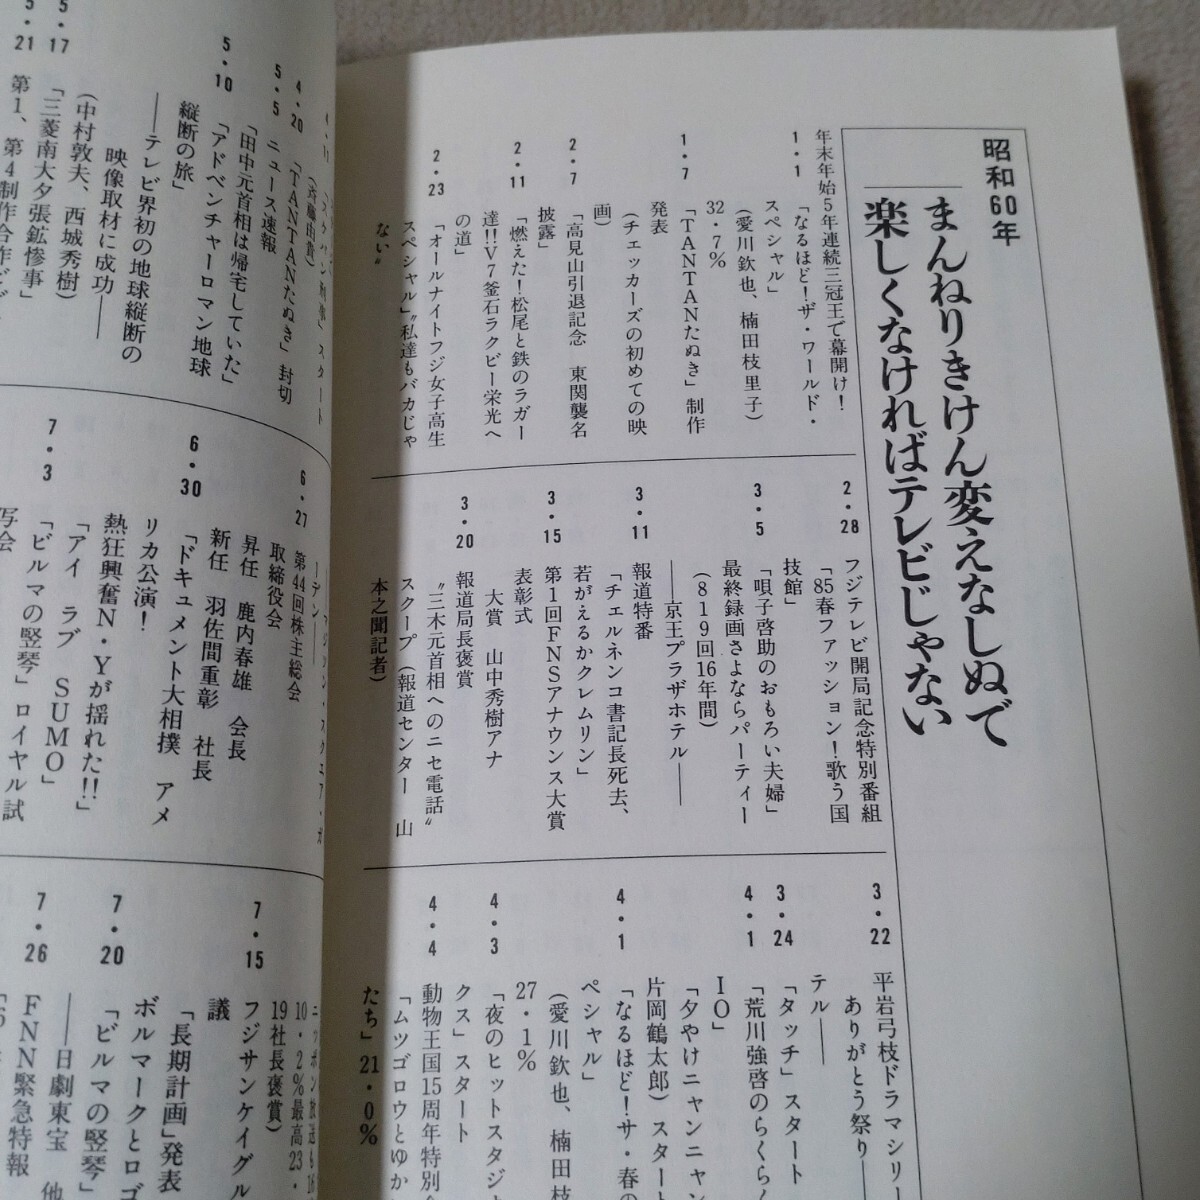 昭和60年
まんねりきけん変えなしぬで
楽しくなければテレビじゃない
年末年始5年連続三冠王で幕開け！
1・1
「なるほど！ザ・ワールド・
スペシャル」
（愛川欽也、楠田枝里子）
32・7％
1・7
「TANTANたぬき」制作
発表
（チェッカーズの初めての映
画）
2・7
「高見山引退記念　東関襲名
披露」
2・11
「燃えた！松尾と鉄のラガー
達!!V7釜石ラクビー栄光へ
の道」
2・23
「オールナイトフジ女子高生
スペシャル」〝私達もバカじゃ
ない〟
2・28
フジテレビ開局記念特別番組
「85春ファッション！歌う国
技館」
3・5
「唄子啓助のおもろい夫婦」
最終録画さよならパーティー
（819回16年間）
――京王プラザホテル――
3・11
報道特番
「チェルネンコ書記長死去、
若がえるかクレムリン」
3・15
第1回FNSアナウンス大賞
表彰式
大賞　山中秀樹アナ
3・20
報道局長褒賞
〝三木元首相へのニセ電話〟
スクープ（報道センター　山
本之聞記者）
3・22
平岩弓枝ドラマシリー
ありがとう祭り――
テル――
3・24
「タッチ」スタート
4・1
「荒川強啓のらくらく
IO」
「夕やけニャンニャン
片岡鶴太郎）スタート
4・1
「なるほど！ザ・春の
ペシャル」
（愛川欽也、楠田枝
27・1％
4・3
「夜のヒットスタジ
クス」スタート
4・4
動物王国15周年特別企
「ムツゴロウとゆか
たち」21・0％
スタート
（斉藤由貴）
4・20
「TANTANたぬき」封切
5・5
ニュース速報
「田中元首相は帰宅していた」
5・10
「アドベンチャーロマン地球
縦断の旅」
――テレビ界初の地球縦断の
映像取材に成功――
（中村敦夫、西城秀樹）
5・17
「三菱南大夕張鉱惨事」
5・21
第1、第4制作合作ビデ
ーデン――
6・27
第44回株主総会
取締役会
昇任　鹿内春雄　会長
新任　羽佐間重彰　社長
6・30
「ドキュメント大相撲　アメ
リカ公演！
熱狂興奮N・Yが揺れた!!」
「アイ　ラブ　SUMO」
7・3
「ビルマの竪琴」ロイヤル試
写会
10・2％最高23・
19社長褒賞）
7・15
フジサンケイグル
議
「長期計画」発表
ボルマークとロゴ
7・20
「ビルマの竪琴」
――日劇東宝　他
7・26
FNN緊急特報